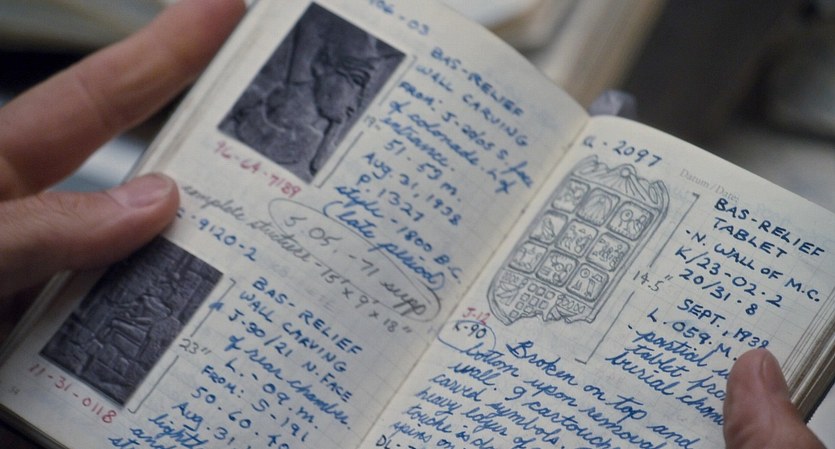 BAS-RELIEF
WALL CARVING
FROM: J-20S S. face
of colonade L of
entrance.
51-59 m.
AUG. 21, 1938
P. 1327
style - 1800 B.C.
(late period)
96-64-7189
complete structure - 15' x 9' x 18"
S 05 -71 supp
9120-2
BAS-RELIEF
WALL CARVING
J-30/21 N. FACE
of rear chamber.
L.-09. m.
FROM: S-191
50-60.
Aug. 31,
23"
11-31-0118
-2097
Datum / Date
BAS-RELIEF
TABLET
-N. WALL OF M.C.
K/23-02.2
20/31-8
SEPT., 1938
L. 059. M.
- partial
tablet
burial
14.5"
J-12
K-90
Broken on top and
bottom upon removal
wall. 9 cartouche
carved symbols.
heavy edges of